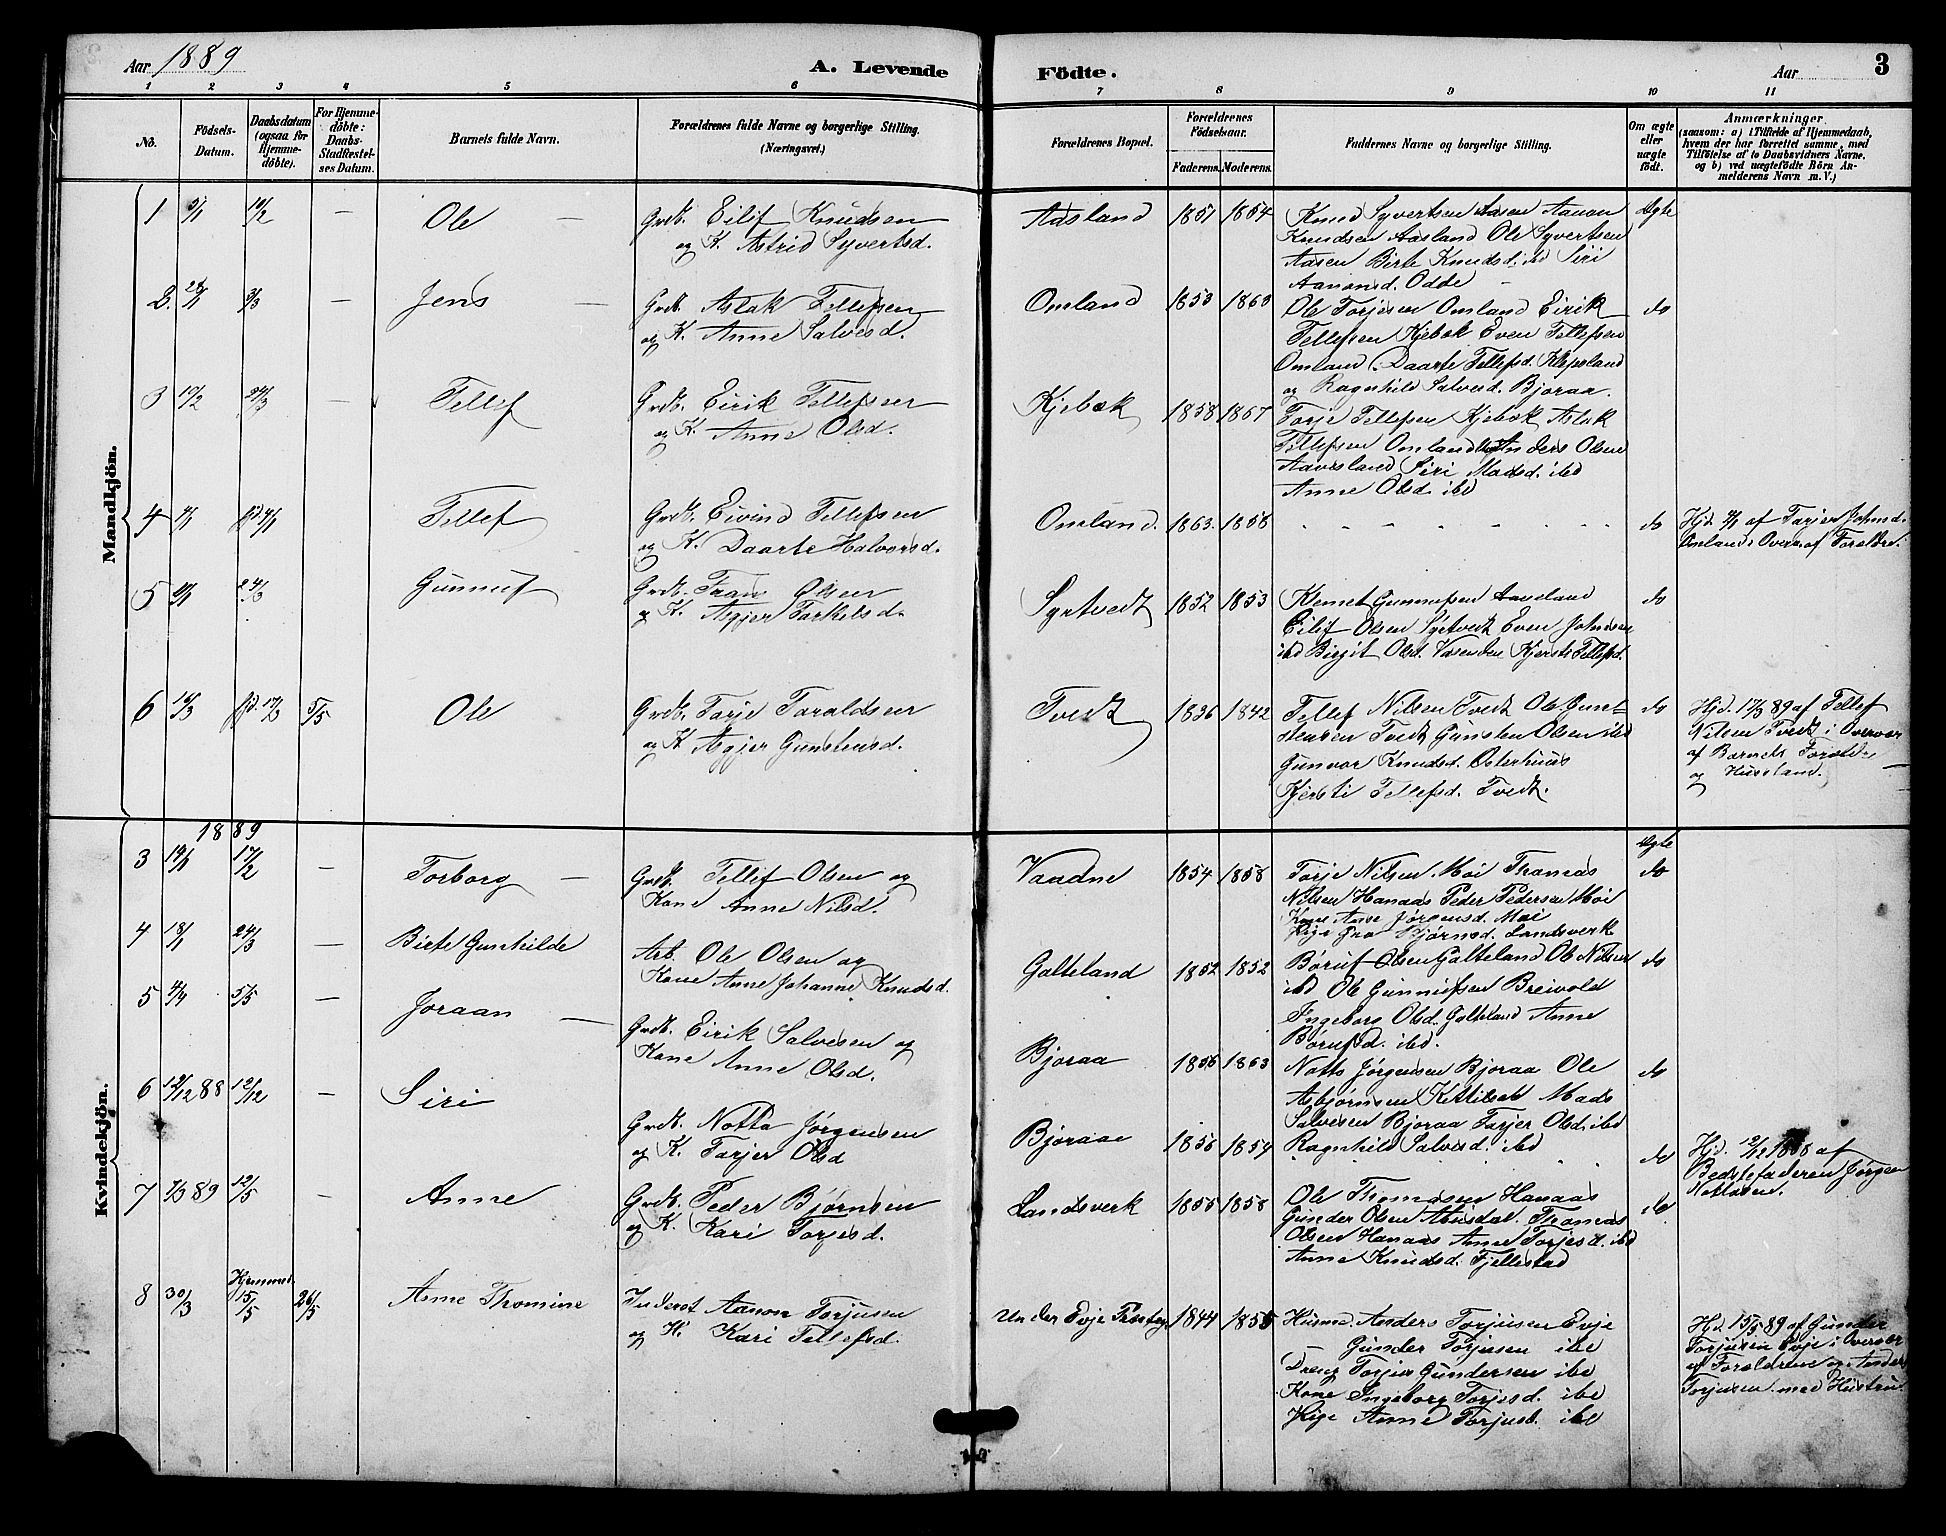 Aar 1889 A. Levende Födte. Aar 3
1 2 3 4 5 6 7 8 9 10 11
No.
Födsels-Datum.
Daabsdatum (ogsaa for Hjemmedöbte).
For Hjemmedöbte: Daabs-Stadfæstelses Datum.
Barnets fulde Navn.
Forældrenes fulde Navne og borgerlige Stilling. (Næringsvei.)
Forældrenes Bopæl.
Forældrenes Födselsaar.
Faderens. Moderens.
Faddernes Navne og borgerlige Stilling.
Om ægte eller uægte födt.
Anmærkninger.
(saasom: a) i Tilfælde af Hjemmedaab, hvem der har forrettet samme, med Tilföielse af to Daabsvidners Navne. og b) ved uægtefödte Börn Anmelderens Navn m. V.)
Mandkjön.
1 5/1 10/2 — Ole — Grdb. Eilif Knudsen
og K. Astrid Syvertsd.
Aasland 1851 1854 Knud Syvertsen Aasen Aanon Ægte
Knudsen Aasland Ole Syvertsen
Aasen Birte Knudsd. ibd Siri
Aanonsd. Odde
2. 28/1 3/3 — Jens — Grdb. Aslak Tellefsen
og K. Anne Salvesd.
Omland 1853 1860 Ole Torjesen Omland Eirik do
Tellefsen Kjebæk Even Tellefsen
Omland. Daarte Tellefsd. Klepsland
og Ragnhild Salvesd. Bjoraa.
3 17/2 24/3 — Tellef Grdb. Eirik Tellefsen
og K. Anne Olsd.
Kjebæk 1858 1867 Torje Tellefsen Kjebæk Aslak
Tellefsen Omland Anders Olsen
Aavesland Siri Madsd. ibd
Anne Olsd. ibd
4 Tellef Grdb. Eivind Tellefsen
og K. Daarte Halvorsd.
Omland. 1863. 1858 do Hjd. af Tarjer Johnsd.
Omland i Overv. af Forældre.
5 24/3 Gunnuf Grdb. Olsen
og K. Asgjer Tarkelsd.
Syrtvedt 1852 1853 Klemet Gunnufsen Aaseland do
Eilif Olsen Syrtvedt Even Johnsen
ibd Birgit Olsd. Vasenden Kjersti Tellefsd.
6 16/3 Hjd. 17/3 5/5 Ole Grdb. Tarje Taraldsen
og K Asgjer Gunstensd.
Tvedt 1836 1842 Tellef Nilsen Tvedt Ole Gun- do
stensen Tvedt Gunsten Olsen ibd
Gunvor Knudsd. Osterhuus
Kjersti Tellefsd. Tvedt.
Hjd. 17/3 89 af Tellef
Nilsen Tvedt i Overvær
af Barnets Foræld-
og Huusland.
Kvindekjön.
1889
3 19/1 17/2 — Torborg — Grdb. Tellef Olsen og
Kone Anne Nilsd.
Vaadne 1854 1858 Torje Nilsen Moi Thomas Ægte do
Nilsen Hanaas Peder Pedersen Moi
Kone Aase Jørgensd. Moi
Pige Gro Bjørnsd. Landsverk
4 18/1 24/3 — Birte Gunhilde Arb. Ole Olsen og
Kone Anne Johanne Knudsd.
Galteland 1852 1852 Børuf Olsen Galteland Ole Nilsen do
ibd Ole Gunnufsen Breivold
Ingeborg Olsd. Galteland Anne
Børufsd. ibd.
5 4/4 5/5 — Joraan — Grdb. Eirik Salvesen og
Kone Anne Olsd.
Bjoraa 1856 1863 Notto Jørgensen Bjoraa Ole do
Asbjørnsen Mads
Salvesen Bjoraa Tarjer Olsd. ibd
Ragnhild Salvesd. ibd
6 12/12 88 12/12 — Siri Grdb. Notto Jørgensen
og K. Tarjer Olsd
Bjoraae 1856 1854 do Hjd. 12/12 1888 af
Bedstefaderen Jørgen
Nottosen.
7 7/3 89 12/5 — Anne Grdb. Peder Bjørnsen
og K. Kari Torjesd.
Landsverk 1855 1858 Ole Thomasen Hanaas do
Gunder Olsen Abusdal. Thomas
Olsen Hanaas Anne Torjesd. ibd
Anne Knudsd. Fjellestad
8 30/3 Hjemmed. 15/5 26/5 Anne Thomine Inderst Aanon Torjusen
og K. Kari Tellefsd.
Under Evje Præsteg. 1844 1855 Husmd. Anders Torjusen Evje
Gunder Torjusen ibd
Dreng Torjus Gundersen ibd
Kone Ingeborg Torjesd. ibd
Pige Anne Torjusd. ibd
Hjd. 15/5 89 af Gunder
Torjusen Evje i Overvær
af Forældrene og Anders
Torjusen med Hustru